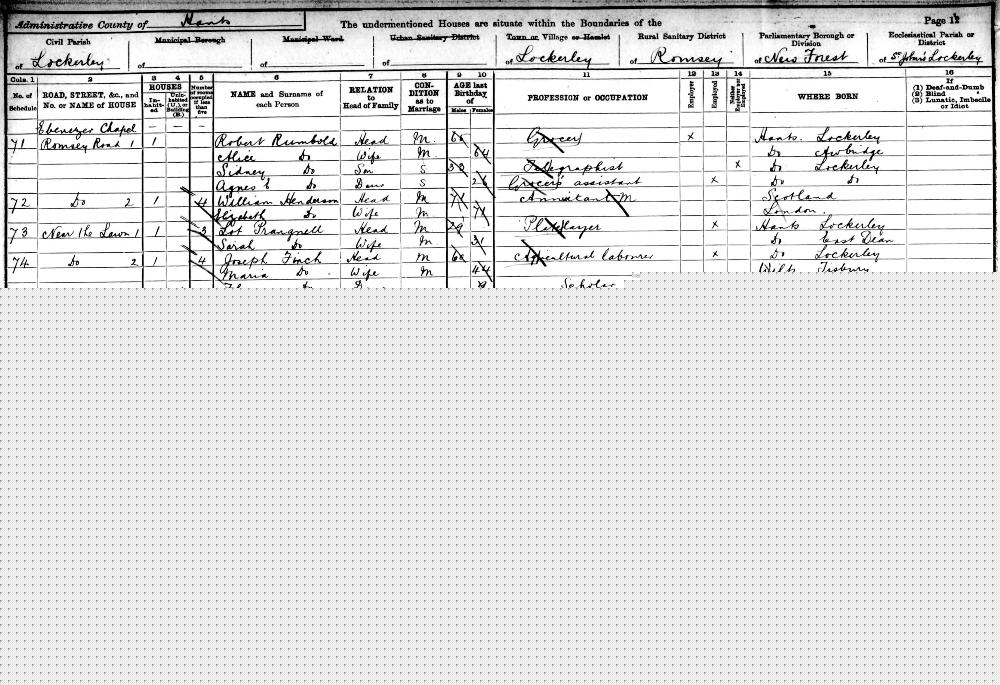 Administrative County of Hants The undermentioned Houses are situate within the Boundaries of the Page 12
Civil Parish Municipal Borough Municipal Ward Urban Sanitary District Town or Village or Hamlet Rural Sanitary District Parliamentary Borough or Division Ecclesiastical Parish or District
of Lockerley of of of of Lockerley of Romsey of New Forest of St John's Lockerley
Cols. 1 2 3 4 5 6 7 8 9 10 11 12 13 14 15 16
No. of Schedule ROAD, STREET, &c., and No. or NAME of HOUSE HOUSES Inhabited Uninhabited (U.), or Building (B.) Number of rooms occupied if less than five NAME and Surname of each Person RELATION to Head of Family CONDITION as to Marriage AGE last Birthday of Males Females PROFESSION or OCCUPATION Employer Employed Neither Employer nor Employed WHERE BORN If (1) Deaf-and-Dumb (2) Blind (3) Lunatic, Imbecile or Idiot
Ebenezer Chapel — — —
71 Romsey Road 1 1 Robert Rumbold Head M. Grocer x Hants. Lockerley
Alice Do Wife M. 64 Do Awbridge
Sidney Do Son S Telegraphist x Do Lockerley
Agnes E Do Daur S 26 Grocer's assistant x Do Do
72 Do 2 1 4 William Henderson Head M 71 M Scotland
Elizabeth Do Wife M 71 London.
73 Near the Lawn 1 1 3 Lot Prangnell Head M 29 Platelayer x Hants Lockerley
Sarah Do Wife M 31 Do East Dean
74 Do 2 1 4 Joseph Finch Head M Agricultural labourer x Do Lockerley
Maria Do Wife M 44 Wilts Tisbury
Scholar